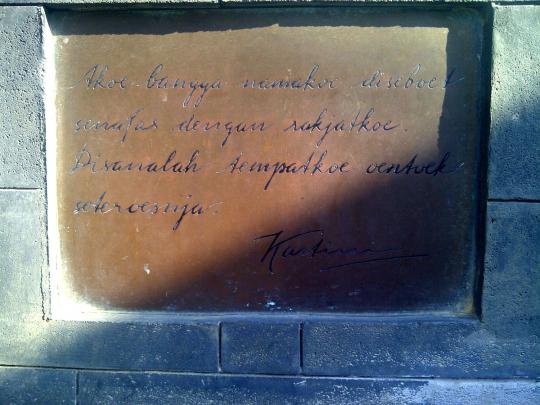 Akoe bangga namakoe diseboet
senafas dengan rakjatkoe.
Disanalah tempatkoe oentoek
seteroesnja.
Kartini